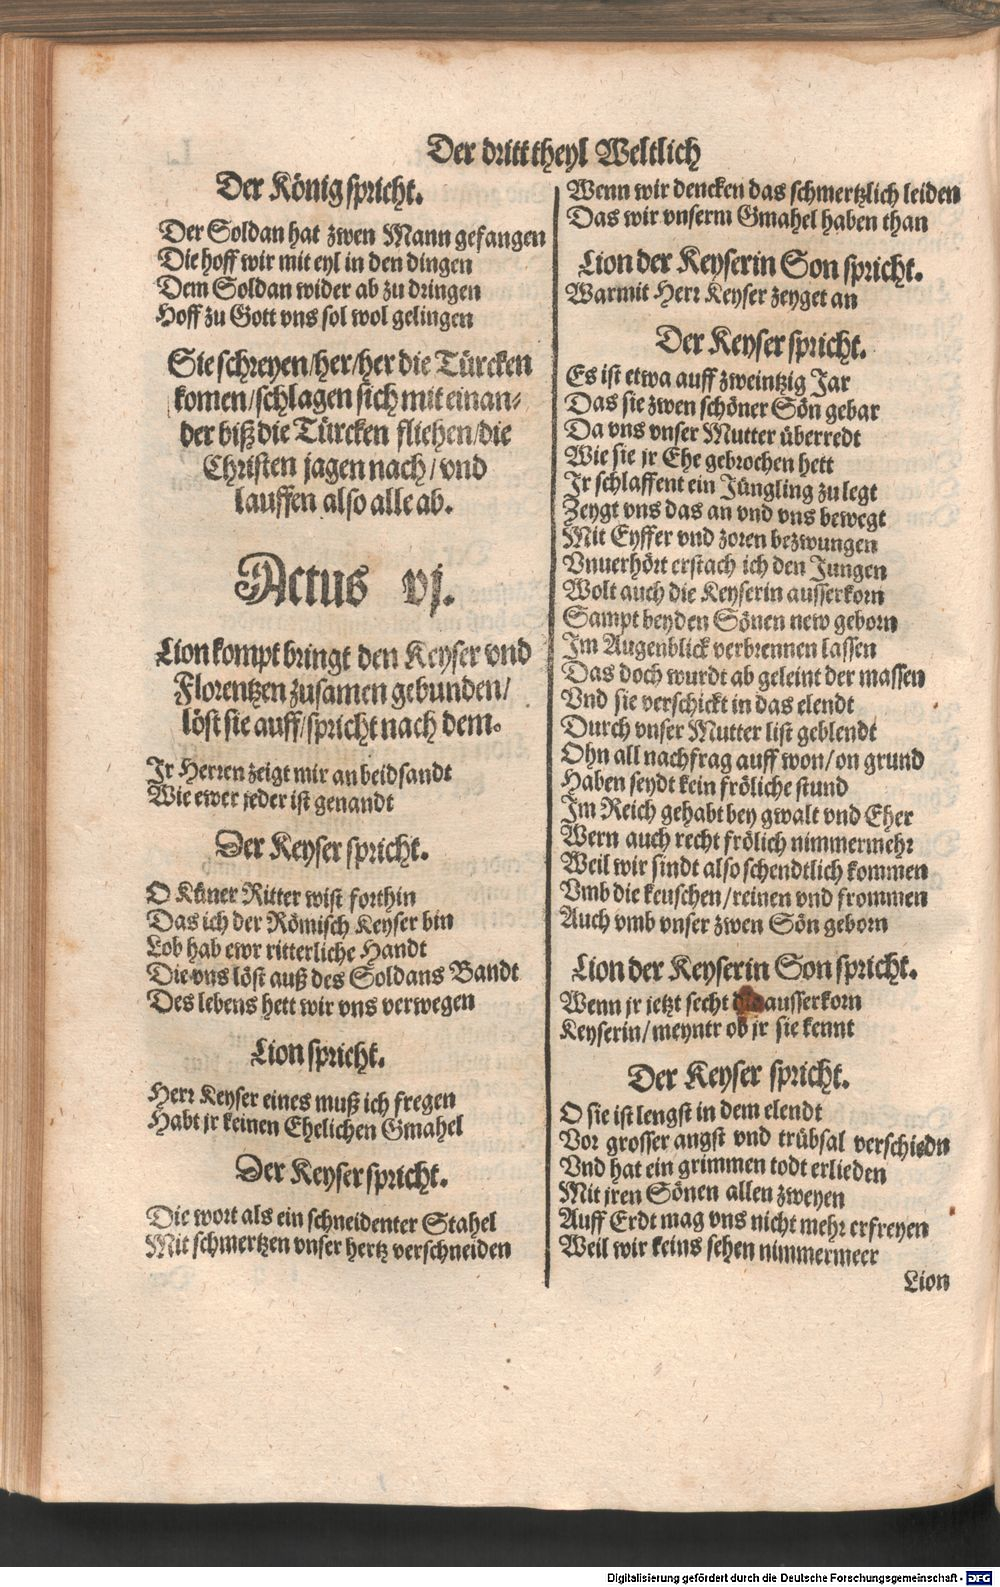 Der dritt theyl Weltlich
Der König spricht.
Der Soldan hat zwen Mann gefangen
Die hoff wir mit eyl in den dingen
Dem Soldan wider ab zu dringen
Hoff zu Gott vns sol wol gelingen
Sie schreyen/her/her die Türcken
komen/schlagen sich mit einan-
der biß die Türcken fliehen/die
Christen jagen nach/vnd
lauffen also alle ab.
Actus vj.
Lion kompt bringt den Keyser vnd
Florentzen zusamen gebunden/
löst sie auff/spricht nach dem.
Ir Herren zeigt mir an beidsandt
Wie ewer jeder ist genandt
Der Keyser spricht.
O Küner Ritter wist forthin
Das ich der Römisch Keyser bin
Lob hab ewr ritterliche Handt
Die vns löst auß des Soldans Bandt
Des lebens hett wir vns verwegen
Lion spricht.
Herr Keyser eines muß ich fregen
Habt jr keinen Ehelichen Gmahel
Der Keyser spricht.
Die wort als ein schneidenter Stahel
Mit schmertzen vnser hertz verschneiden
Wenn wir dencken das schmertzlich leiden
Das wir vnserm Gmahel haben than
Lion der Keyserin Son spricht.
Warmit Herr Keyser zeyget an
Der Keyser spricht.
Es ist etwa auff zweintzig Jar
Das sie zwen schöner Sön gebar
Da vns vnser Mutter überredt
Wie sie jr Ehe gebrochen hett
Ir schlaffent ein Jüngling zu legt
Zeygt vns das an vnd vns bewegt
Mit Eyffer vnd zoren bezwungen
Vnuerhört erstach ich den Jungen
Wolt auch die Keyserin ausserkorn
Sampt beyden Sönen new geborn
Im Augenblick verbrennen lassen
Das doch wurdt ab geleint der massen
Vnd sie verschickt in das elendt
Durch vnser Mutter list geblendt
Ohn all nachfrag auff won/on grund
Haben seydt kein fröliche stund
Im Reich gehabt bey gwalt vnd Eher
Wern auch recht frölich nimmermehr
Weil wir sindt also schendtlich kommen
Vmb die keuschen/reinen vnd frommen
Auch vmb vnser zwen Sön geborn
Lion der Keyserin Son spricht.
Wenn jr jetzt secht die ausserkorn
Keyserin/meyntr ob jr sie kennt
Der Keyser spricht.
O sie ist lengst in dem elendt
Vor grosser angst vnd trübsal verschiedn
Vnd hat ein grimmen todt erlieden
Mit jren Sönen allen zweyen
Auff Erdt mag vns nicht mehr erfreyen
Weil wir keins sehen nimmermeer
Lion
Digitalisierung gefördert durch die Deutsche Forschungsgemeinschaft - DFG